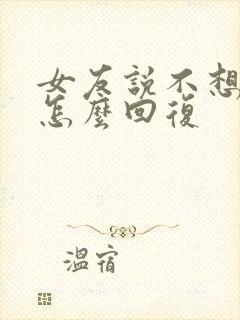 女友說不想
怎麼回復
溫宿